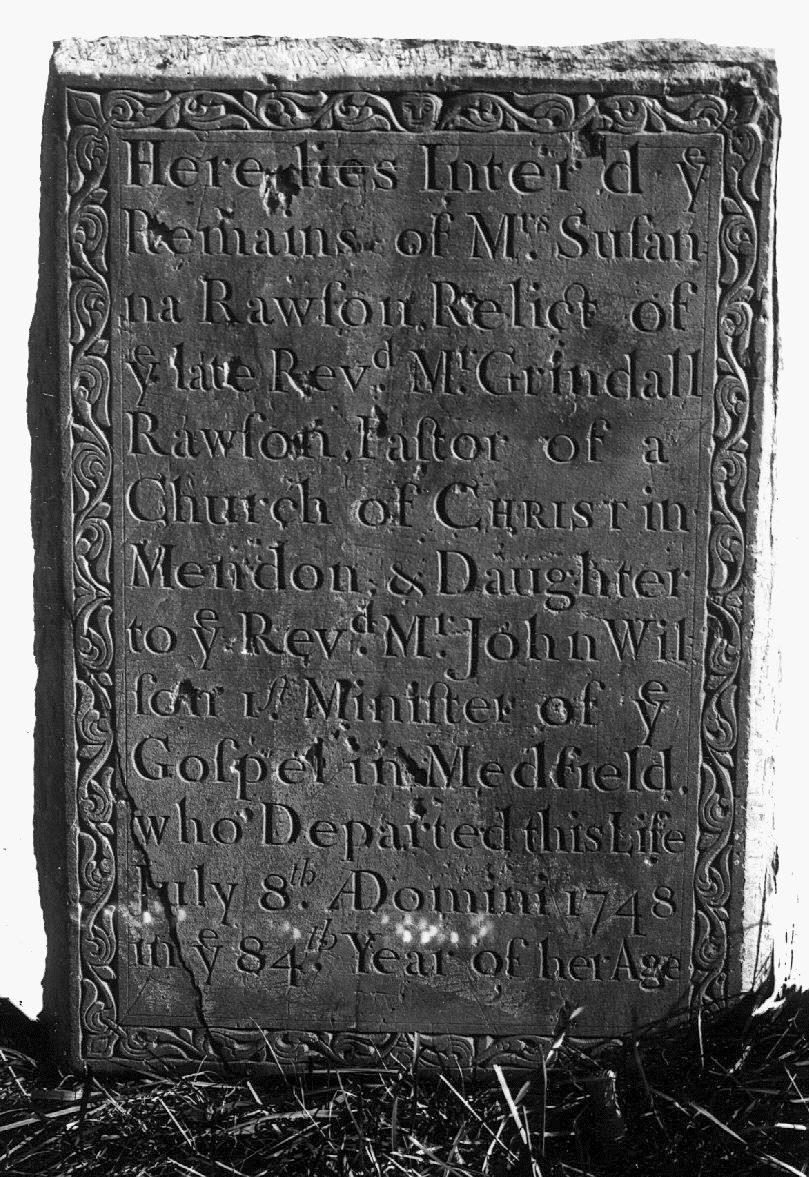 Here lies Inter'd yᵉ
Remains of Mʳˢ. Suſan
na Rawſon, Relict of
yᵉ late Revᵈ. Mʳ. Grindall
Rawſon, Paſtor of a
Church of CHRIST in
Mendon, & Daughter
to yᵉ Revᵈ. Mʳ. John Wil
ſon 1ſt Miniſter of yᵉ
Goſpel in Medfield.
who Departed this Life
July 8.ᵗʰ ADomini 1748
in yᵉ 84.ᵗʰ Year of her Age